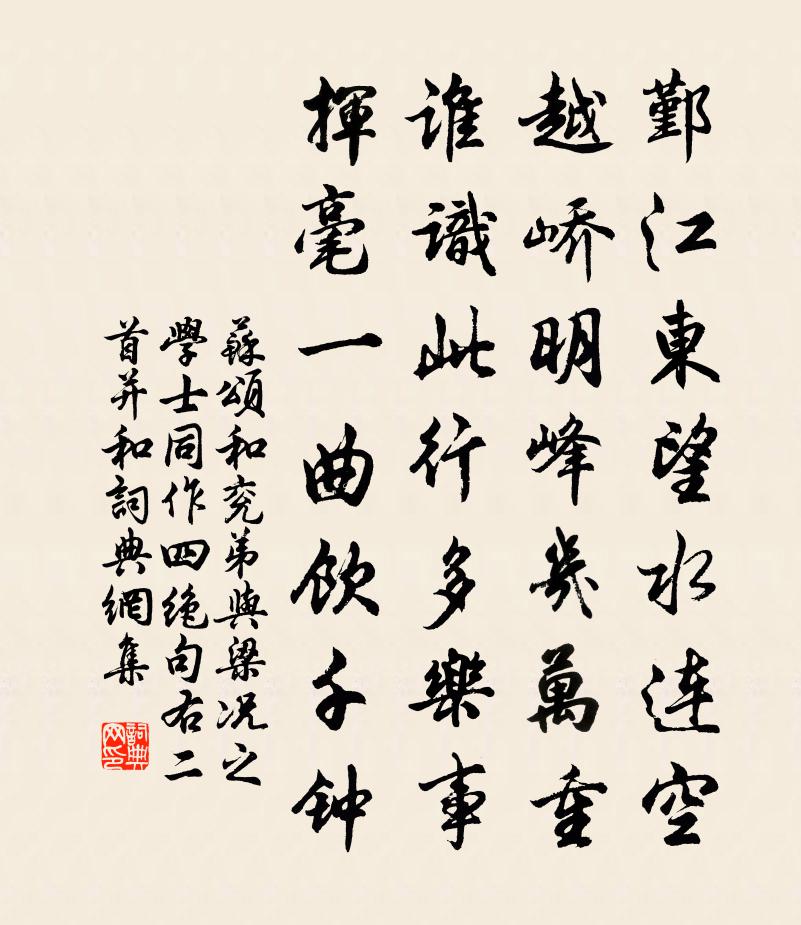 鄞江東望水連空
越嶠明峰幾萬重
誰識此行多樂事
揮毫一曲飲千钟
蘇頌和兖弟與梁况之
學士同作四絶句右二
首并和詞典網集
詞典网印